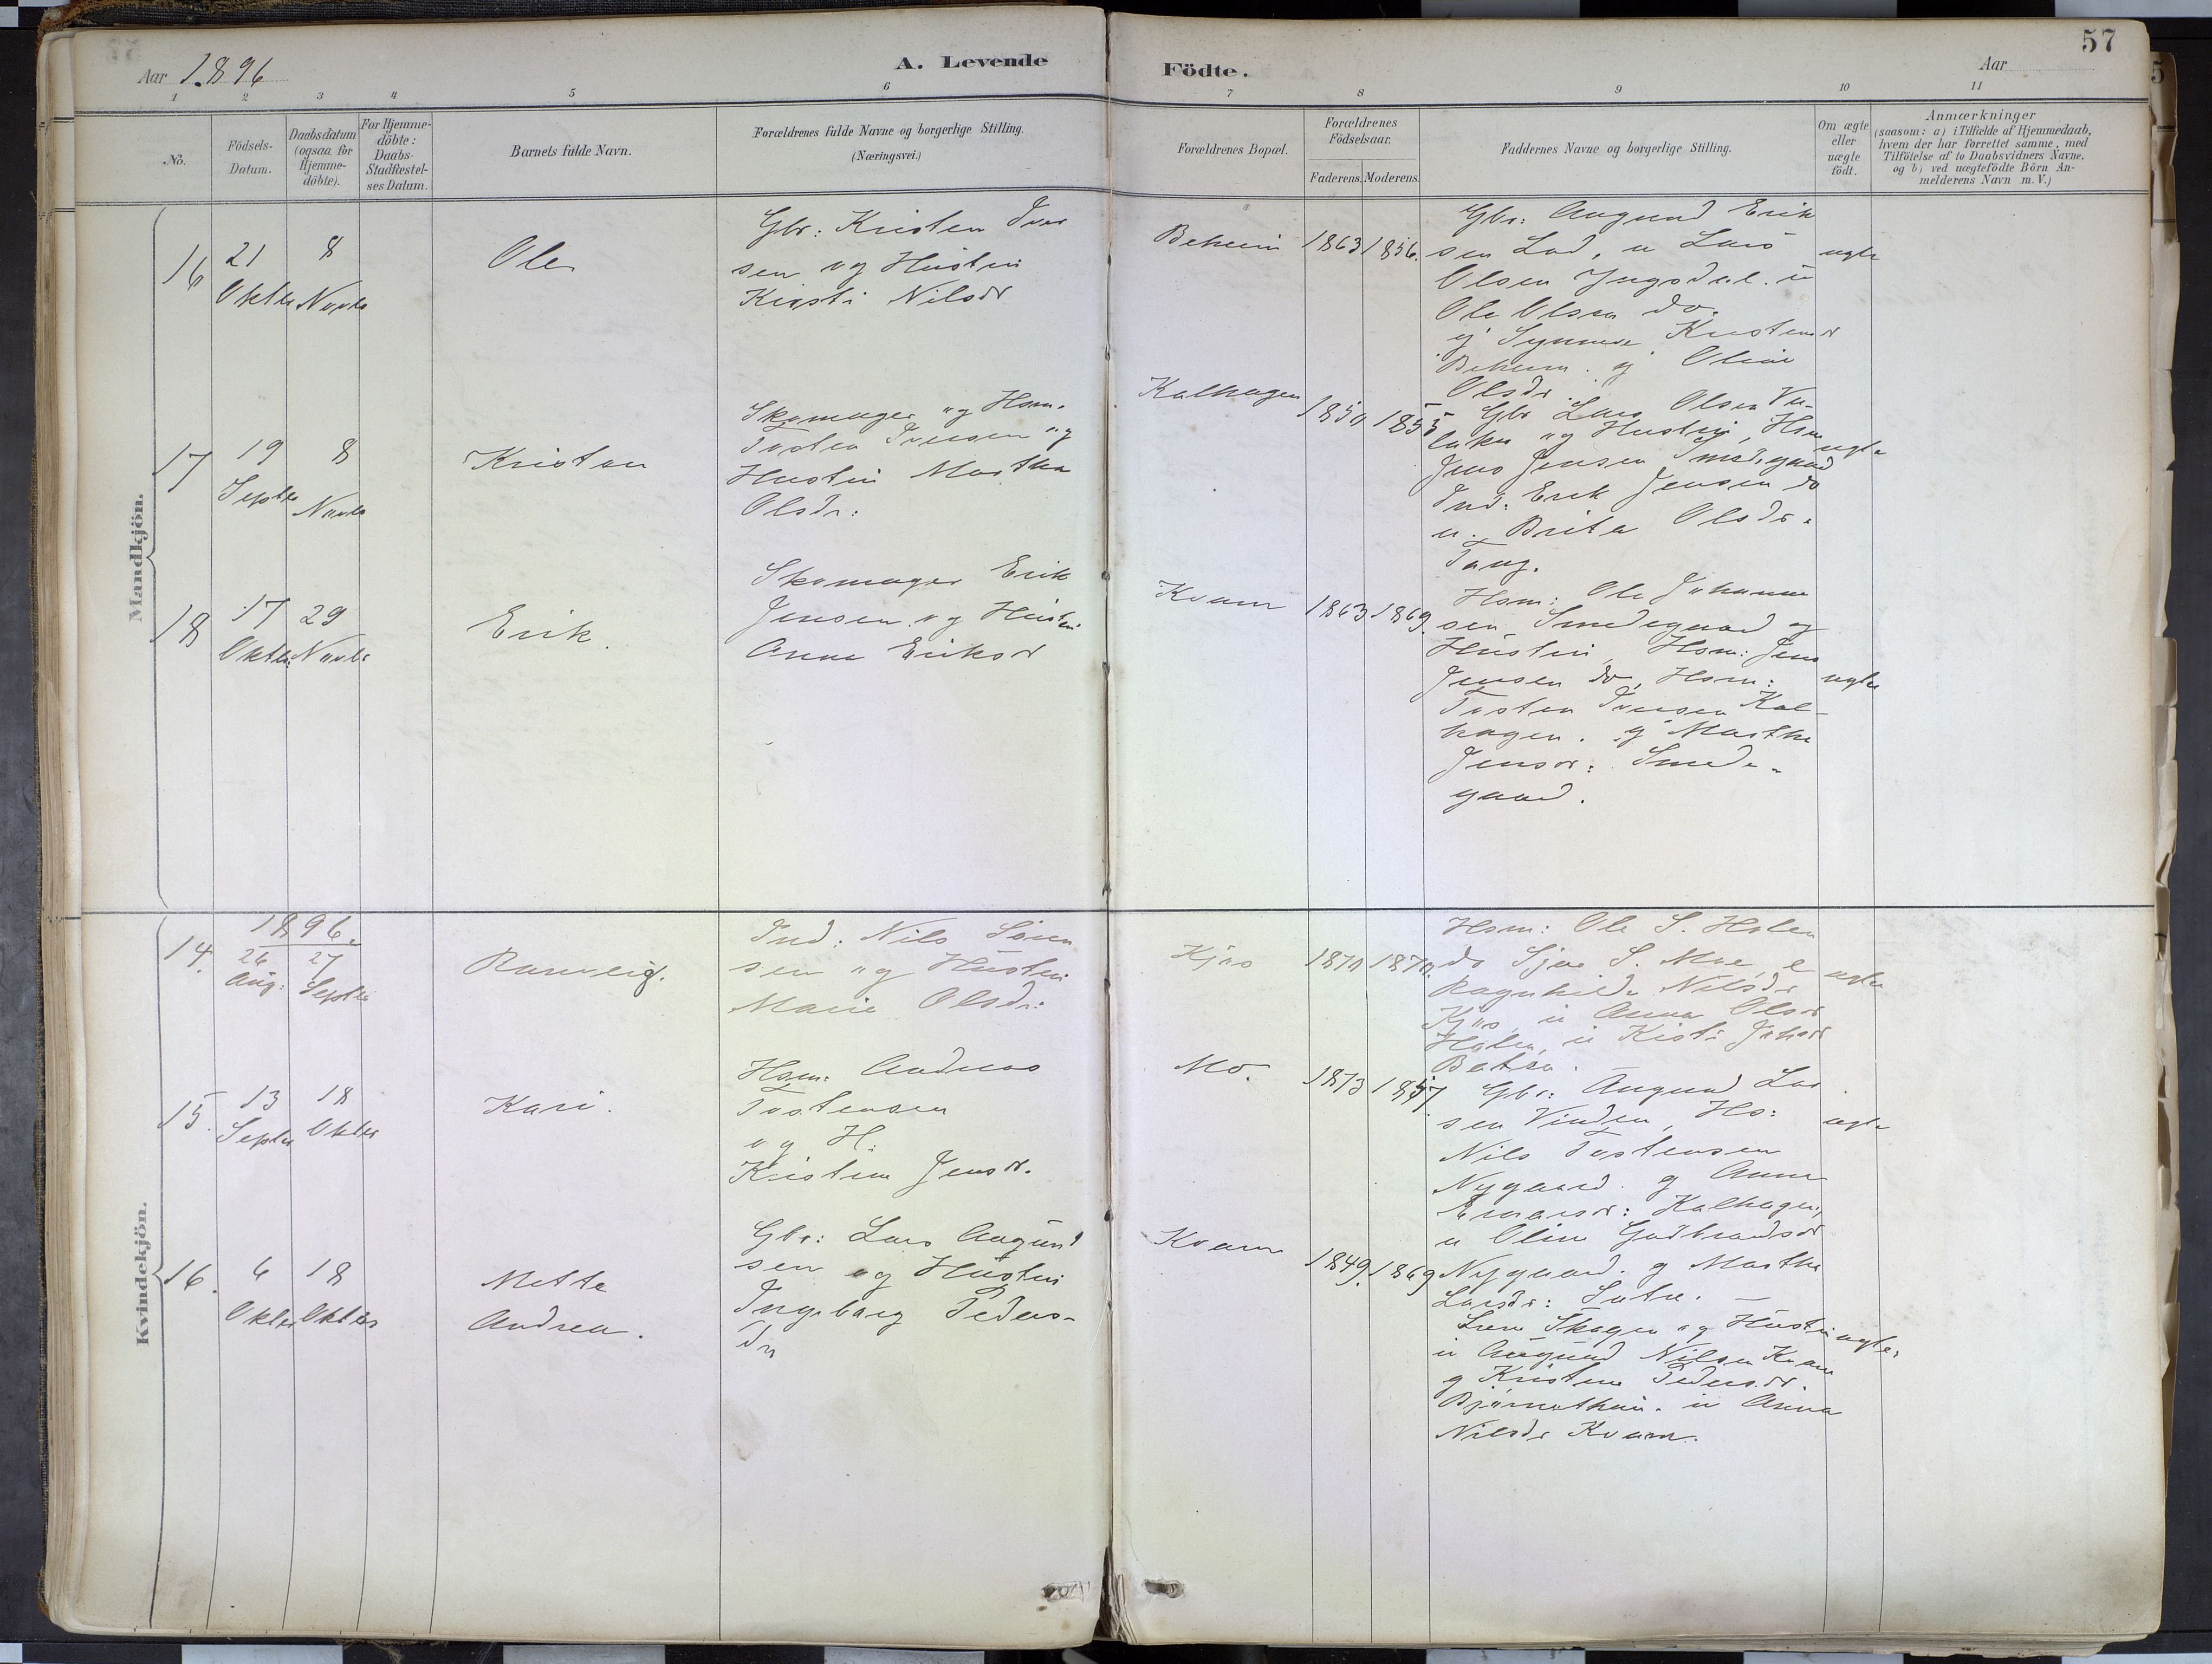 57
Aar 1896
A. Levende
Födte.
Aar
1 2 3 4 5 6 7 8 9 10 11
No.
Födsels-
Datum.
Daabsdatum
(ogsaa for
Hjemme-
döbte).
For Hjemme-
döbte:
Daabs-
Stadfæstel-
ses Datum.
Barnets fulde Navn.
Forældrenes fulde Navne og borgerlige Stilling.
(Næringsvei.)
Forældrenes Bopæl.
Forældrenes
Födselsaar.
Faderens. Moderens.
Faddernes Navne og borgerlige Stilling.
Om ægte
eller
uægte
født.
Anmærkninger
(saasom: a) i Tilfælde af Hjemmedaab,
hvem der har forrettet samme, med
Tilföielse af to Daabsvidners Navne,
og b) ved uægtefödte Börn An-
melderens Navn m.V.)
Mandkjön.
16
21
Oktbr
8
Novbr
Ole
Gbr: Kristen Iver
sen og Hustru
Kirsti Nilsdr
Beheim
1863
1856.
Gbr: Augund Erik
sen Lad, u Lars
Olsen Yngsdal. u
Ole Olsen do.
g Synneve Kristensdr
Beheim. g Oline
Olsdr
ægte
17
19
Septbr
8
Novbr
Kristen
Skomager og Hsm.
Tosten Iversen og
Hustru Martha
Olsdr:
Kalhagen
1850
1855
Gbr Lars Olsen
og Hustru, Hsm
Jens Jensen Smedegaard
Ind: Erik Jensen do
u. Brita Olsdr.
Tang.
ægte
18
17
Oktbr:
29
Novbr
Erik.
Skomager Erik
Jensen og Hustru
Anne Eriksdr
Kvam
1863
1869.
Hsm: Ole Johanne
sen Smedegaard og
Hustru, Hsm: Jens
Jensen do, Hsm:
Tosten Iversen Kal-
hagen. g Marthe
Jensdr: Smede-
gaard.
ægte
Kvindekjön.
1896.
14.
26
Aug:
27
Septbr
Rannveig.
Ind: Nils Sören
sen og Hustru
Marie Olsdr:
Kjös
1870
1870.
Hsm: Ole S. Holen
do Sjur S. Moe, e
Ragnhilde Nilsdr
Kjös, u Anna Olsdr
Holen, u Kisti Johsdr
ægte
15.
13
Septbr
18
Oktbr
Kari.
Hsm: Andreas
Tostensen
og H:
Kristine Jensdr.
Mo.
1873
Gbr: Augund Lar
sen Vinden, Hs:
Nils Tostensen
Nygaard. g Anne
Einarsdr: Kalhagen,
u Oline Gudbrandsdr
Nygaard. g Marthe
Larsdr: Sutre.
ægte
16.
6
Oktbr
18
Oktbr
Mette
Andrea.
Gbr: Lars Augund
sen og Hustru
Ingeborg Peders-
dr
Kvam
1849.
1869
Skagen og Hustru
u Augund Nilsen Kvam
g Kristine Pedersdr.
u Anna
Nilsdr Kvam.
ægte.